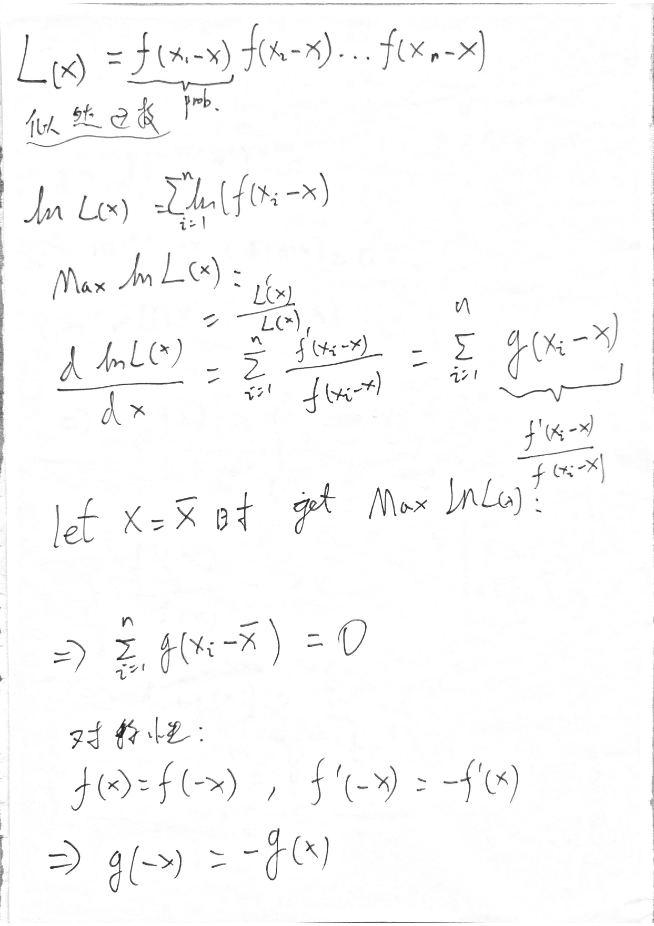 L(x) = f(x₁-x) f(x₂-x)... f(xₙ-x)
似然函数 prob.
ln L(x) = Σⁿᵢ₌₁ ln(f(xᵢ-x)
Max ln L(x) :
= L'(x)/L(x)
d ln L(x)/dx = Σⁿᵢ₌₁ f'(xᵢ-x)/f(xᵢ-x) = Σⁿᵢ₌₁ g(xᵢ-x)
f'(xᵢ-x)/f(xᵢ-x)
let x = x̄ 时 get Max Ln L(x) :
⇒ Σⁿᵢ₌₁ g(xᵢ-x̄) = 0
对称性:
f(x) = f(-x) , f'(-x) = -f'(x)
⇒ g(-x) = -g(x)